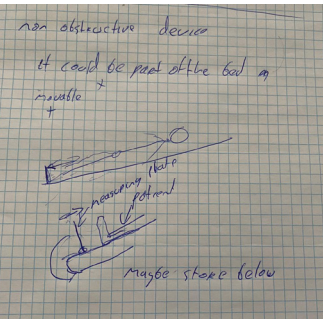 non obstructive device
it could be part of the bed on
movable
measuring plate
patient
Maybe store below